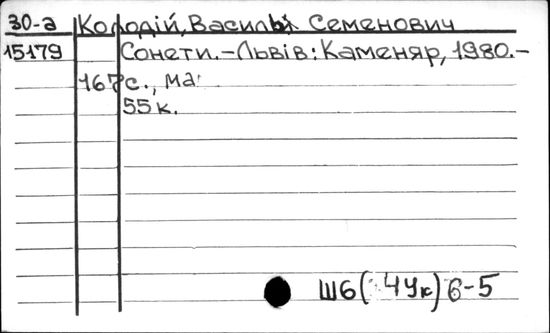 30-а Колодій, Василь Семенович
15179 Сонети.-Львів: Каменяр, 1980.-
167с., ма
55к.
Ш6( 4Ук) 6-5